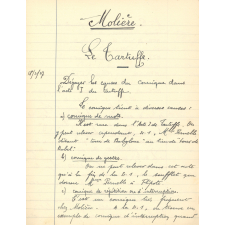 Molière.
Le Tartuffe.
Dégager les causes du comique dans
l'acte I du Tartuffe.
Le comique tient à diverses causes :
a) comique de mots.
Il est rare dans l'Acte I de Tartuffe. On
y peut relever cependant, Mme Pernelle
disant "tour de Babylone" au lieu de "tour de
Babel".
b) comique de gestes.
On ne peut relever dans cet acte
qu'à la fin de la sc. 1, le soufflet que
donne Mme Pernelle à Flipote.
c) comique de répétition ou d'interruption
C'est un comique très fréquent
chez Molière. la sc. 1, on trouve un
exemple de comique d'interruption quand